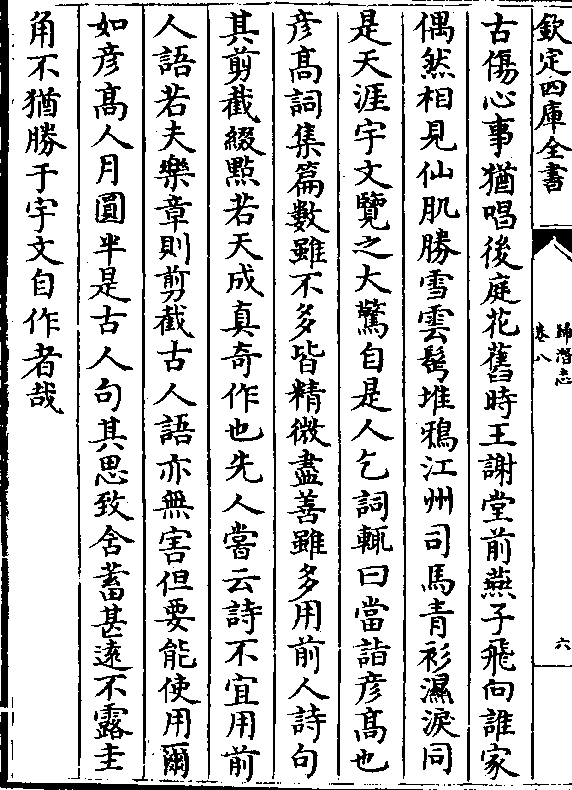 欽定四庫全書
歸潛志
卷八
六
古傷心事猶唱後庭花舊時王謝堂前燕子飛向誰家
偶然相見仙肌勝雪雲髩堆鴉江州司馬青衫濕淚同
是天涯宇文覽之大驚自是人乞詞輒曰當詣彦髙也
彦髙詞集篇數雖不多皆精微盡善雖多用前人詩句
其剪截綴點若天成真奇作也先人嘗云詩不宜用前
人語若夫樂章則剪截古人語亦無害但要能使用爾
如彦髙人月圓半是古人句其思致含蓄甚逺不露圭
角不猶勝于宇文自作者哉